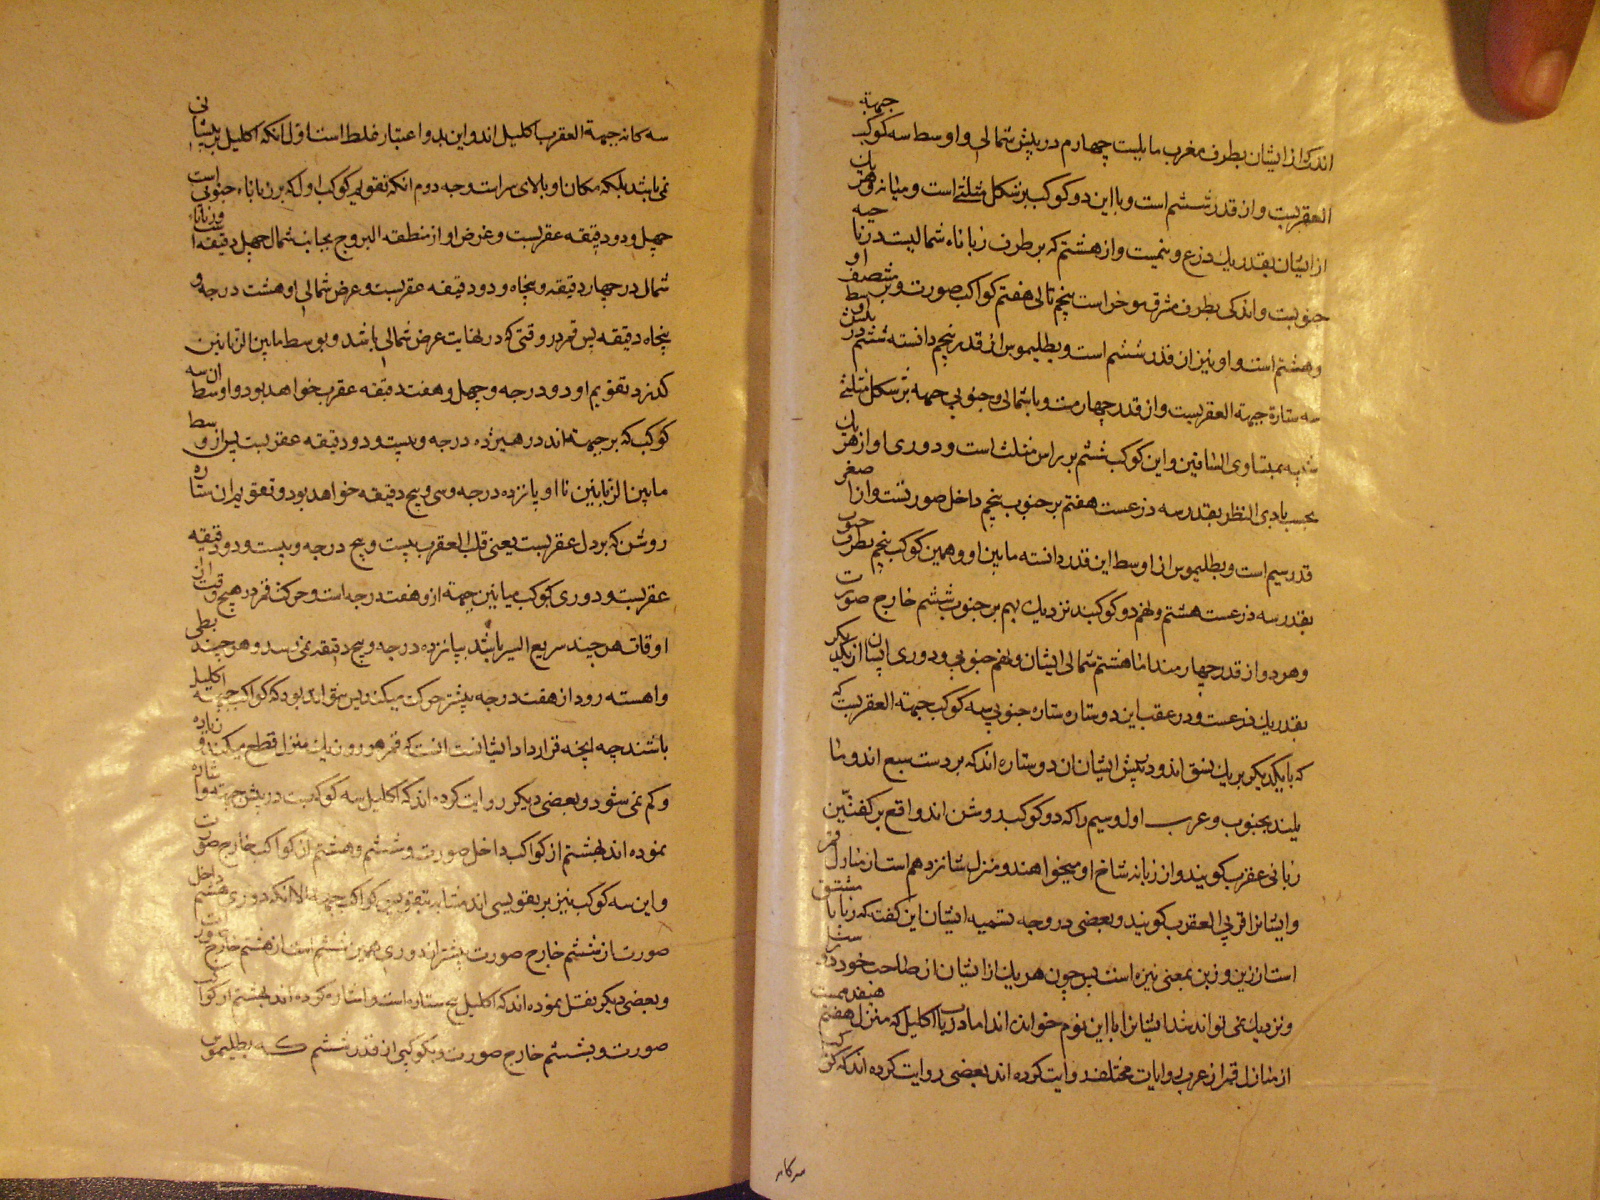 اندکی از ایشان بطرف مغرب مایلست چهارم در پیش شمالی و اوسط سه کوکب جبهة
العقربست و از قدر ششم است و با این دو کوکب بر شکل مثلثی است و میانه او و هر یک
از ایشان بقدر یک ذرع و نیمست و از هشتم که بر طرف زباناء شمالیست در ناحیه
جنوبست و اندکی بطرف مشرق موخر است پنجم تالی هفتم کواکب صورت و بر منتصف او
و هشتم است و او نیز از قدر ششم است و بطلیموس از قدر پنجم دانسته ششم در پیش اوسط
سه ستاره جبهة العقربست و از قدر چهارمست و با شمالی و جنوبی جبهه بر شکل مثلثی
شبیه بمتساوی الساقین و این کوکب ششم بر راس مثلث است و دوری او از هر یک
بحسب بادی النظر بقدر سه ذرعست هفتم بر جنوب پنجم داخل صورتست و از اصغر
قدر سیم است و بطلیموس از اوسط این قدر دانسته ما بین او و همین کوکب پنجم بطرف جنوب
بقدر سه ذرعست هشتم و نهم دو کوکبند نزدیک بهم بر جنوب ششم خارج صورت
و هر دو از قدر چهارمند اما هشتم شمالی ایشان و نهم جنوبی و دوری ایشان از یکدیگر
بقدر یک ذرعست و در عقب این دو ستاره ستاره جنوبی سه کوکب جبهة العقربست که
که با یکدیگر بر یک نسق اند و در پیش ایشان ان دو ستاره اند که بر دست سبع اند و ما
یلند بجنوب و عرب اول و سیم را که دو کوکب روشن اند و واقع بر کفتین
زبانی عقرب کویند و از زبانه شاخ او میخواهند و منزل شانزدهم است از منازل قمر
و ایشانرا قرنی العقرب کویند و بعضی در وجه تسمیه ایشان این کفت که زبانا مشتق
است از زبن و زبن بمعنی نیزه است پس چون هر یک از ایشان از صاحب خود دور
و نزدیک نمی تواند شد ایشانرا با این نوم خوانده اند اما در باب اکلیل که منزل هفدهمست
از منازل قمر از عرب روایات مختلف روایت کرده اند بعضی روایت کرده اند که
سرکانه
سه کانه جبهة العقرب اکلیل اند و این بدو اعتبار غلط است اول انکه اکلیل بر پیشانی
نمی باشد بلکه مکان او بالای سر است وجه دوم انکه تقویم کوکب اول که بر زباناء جنوبی است
چهل و دو دقیقه عقربست و عرض او از منطقه البروج بجانب شمال چهل دقیقه است و زبانا
شمال در چهار دقیقه و پنجاه و دو دقیقه عقربست و عرض شمالی او هشت درجه و
پنجاه دقیقه پس قمر در وقتی که در نهایت عرض شمالی باشد و بوسط ما بین الزبانین
کذرد تقویم او دو درجه و چهل و هفت دقیقه عقرب خواهد بود و اوسط ان سه
کوکب که بر جبهه اند در هیژده درجه و بیست و دو دقیقه عقربست پس از وسط
ما بین الزبانین تا او پانزده درجه و سی و پنج دقیقه خواهد بود و تقویم ان ستاره
روشن که بر دل عقربست یعنی قلب العقرب بیست و پنج درجه و بیست و دو دقیقه
عقربست و دوری کوکب میانین جبهه از او هفت درجه است و حرکت قمر در هیچ وقت از
اوقات هر چند سریع السیر باشد بپانزده درجه و پنج دقیقه نمی رسد و هر چند بطی
و اهسته رود از هفت درجه بیشتر حرکت میکند پس نتواند بود که کواکب جبهه اکلیل
باشند چه انچه قرارداد ایشانست انست که قمر هر روز یک منزل قطع میکند و زیاده
و کم نمی شود و بعضی دیگر روایت کرده اند که اکلیل سه کوکبست در پیش جبهه و اشاره
نموده اند بهشتم از کواکب داخل صورت و ششم و هشتم از کواکب خارج صورت
و این سه کوکب نیز بر تقویسی اند مشابه بتقویس کواکب جبهه الا انکه دوری هشتم داخل
صورت از ششم خارج صورت بیشتر از دوری همین ششم است از هشتم خارج صورت
و بعضی دیگر نقل نموده اند که اکلیل پنج ستاره است و اشاره کرده اند بهشتم از کواکب
صورت و بششم خارج صورت و بکوکبی از قدر ششم که بطلیموس